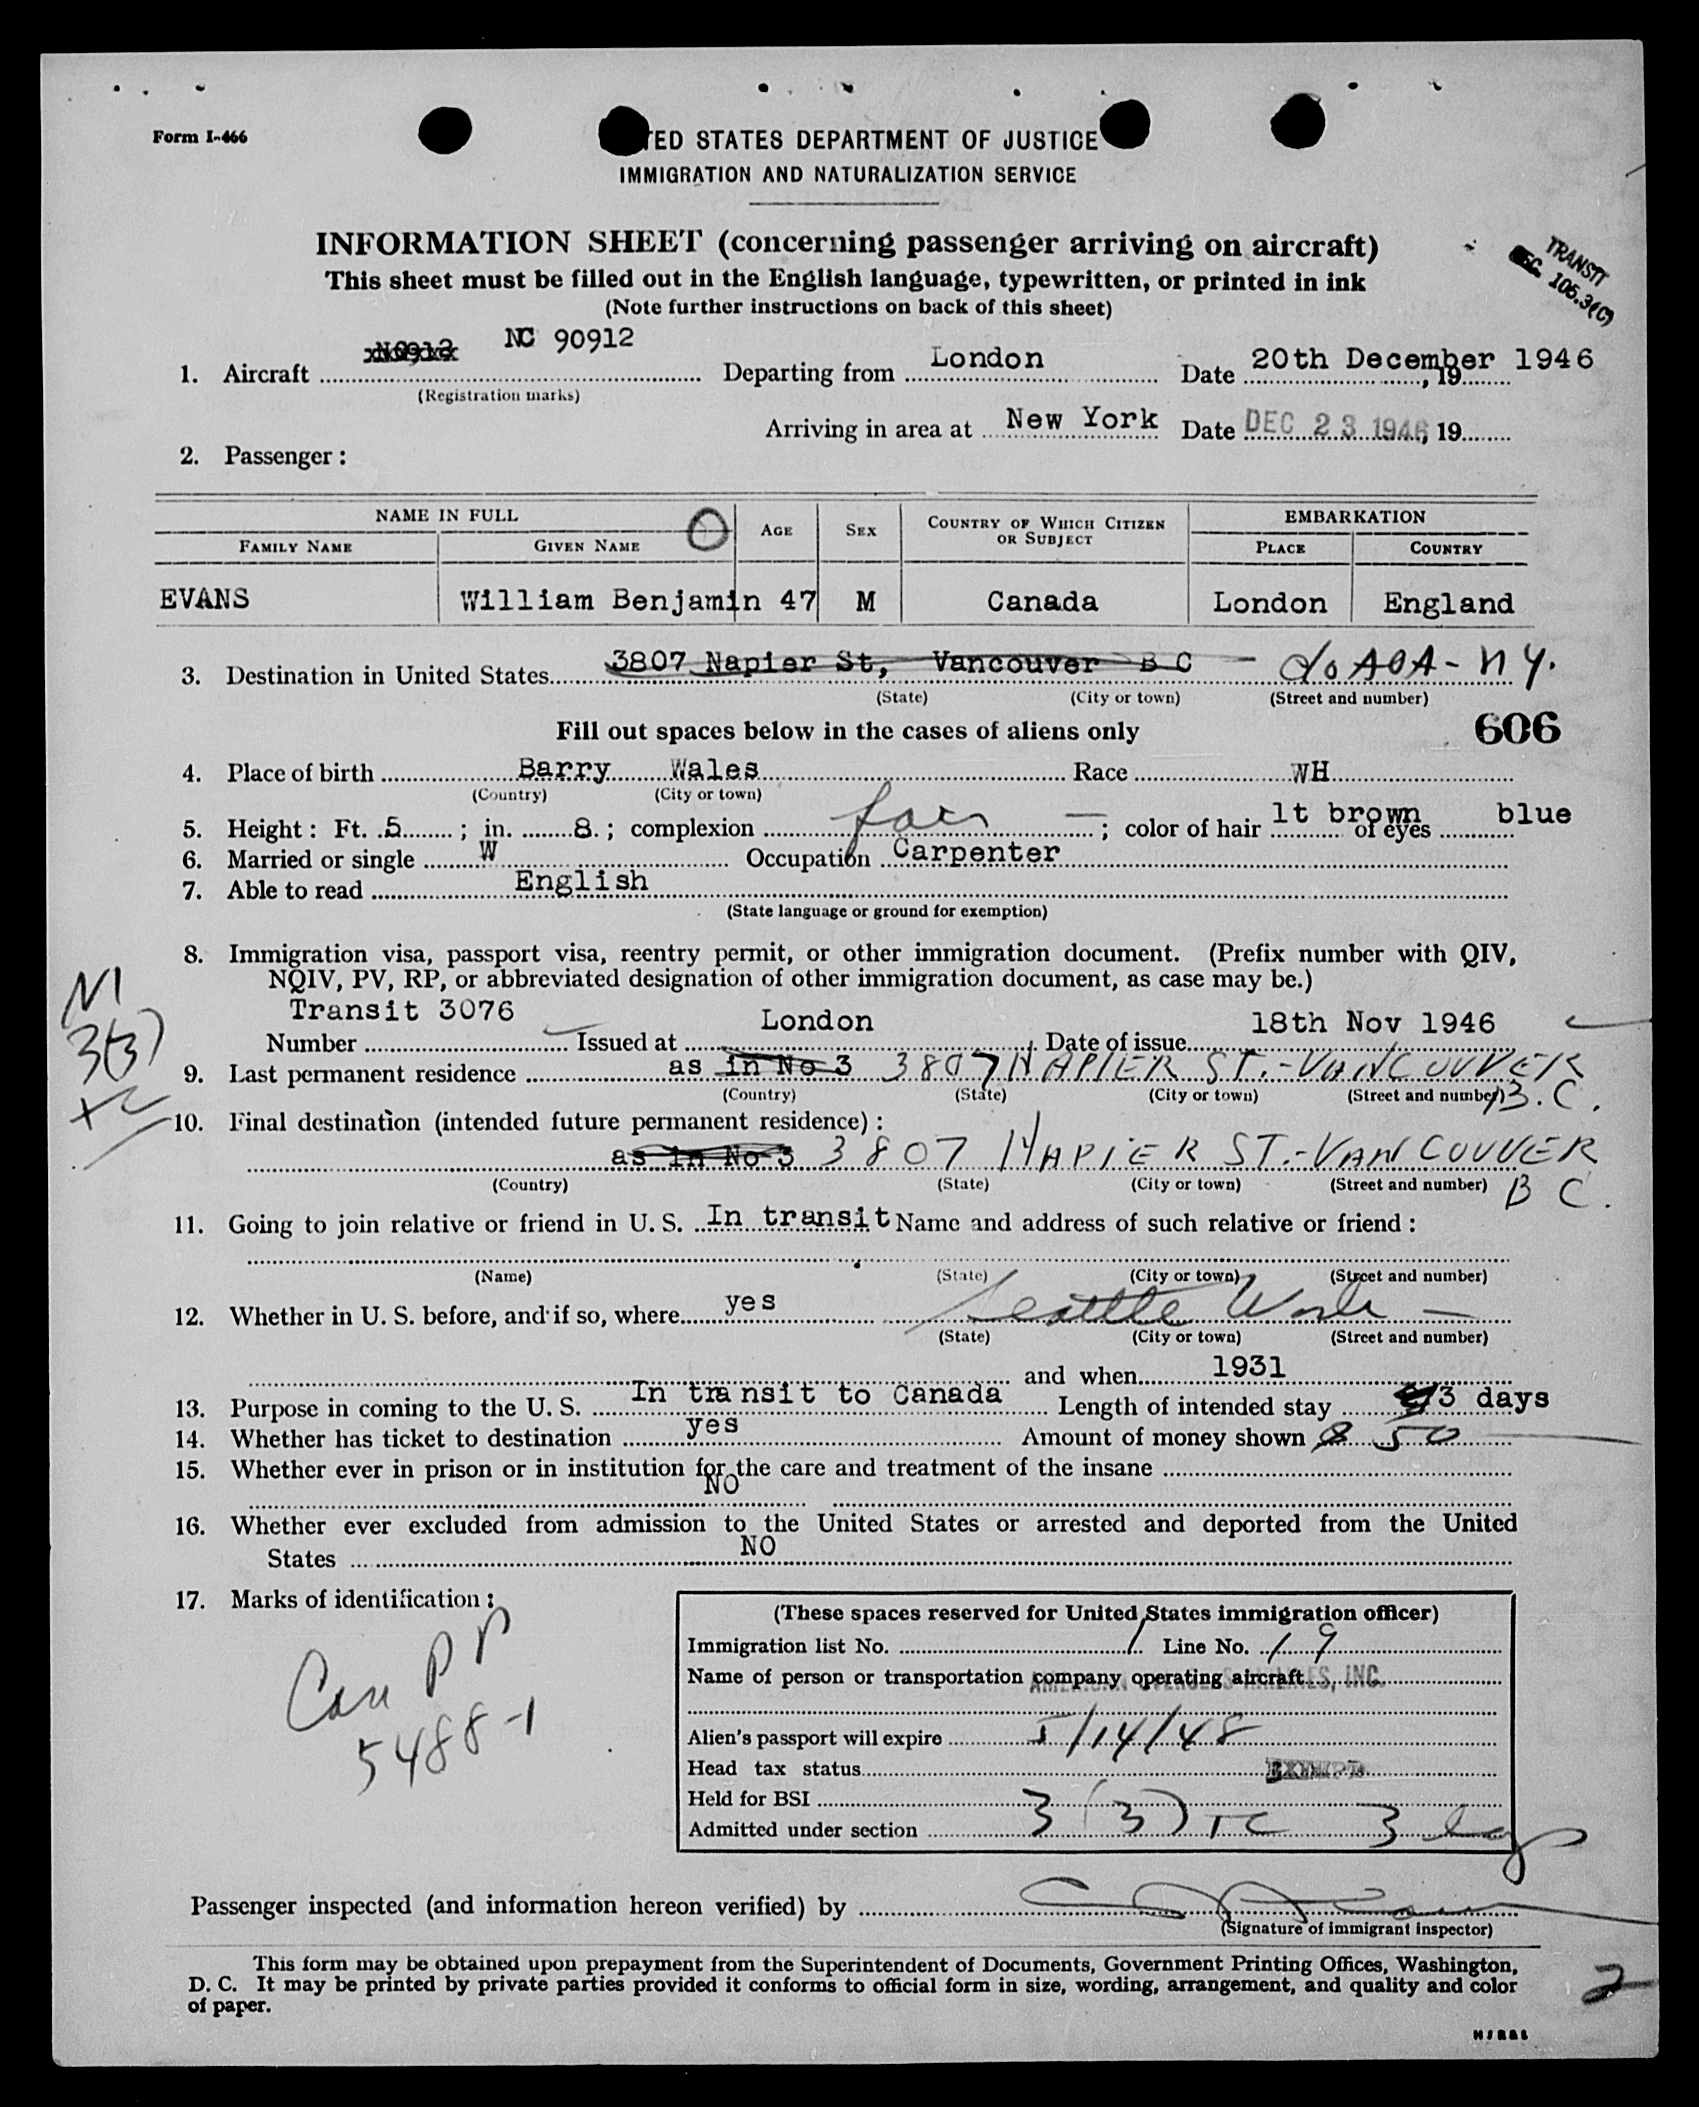 Form I-466
TED STATES DEPARTMENT OF JUSTICE
IMMIGRATION AND NATURALIZATION SERVICE
INFORMATION SHEET (concerning passenger arriving on aircraft)
This sheet must be filled out in the English language, typewritten, or printed in ink
(Note further instructions on back of this sheet)
TRANSIT
SEC. 105.3(C)
1. Aircraft NC 90912 Departing from London Date 20th December 1946, 19
(Registration marks)
Arriving in area at New York Date DEC 23 1946, 19
2. Passenger:
NAME IN FULL AGE SEX COUNTRY OF WHICH CITIZEN OR SUBJECT EMBARKATION
FAMILY NAME GIVEN NAME PLACE COUNTRY
EVANS William Benjamin 47 M Canada London England
3. Destination in United States 3807 Napier St, Vancouver B C c/o AOA - N Y.
(State) (City or town) (Street and number)
Fill out spaces below in the cases of aliens only 606
4. Place of birth Barry Wales Race WH
(Country) (City or town)
5. Height: Ft. 5; in. 8.; complexion fair; color of hair lt brown of eyes blue
6. Married or single W Occupation Carpenter
7. Able to read English
(State language or ground for exemption)
8. Immigration visa, passport visa, reentry permit, or other immigration document. (Prefix number with QIV,
NQIV, PV, RP, or abbreviated designation of other immigration document, as case may be.)
Number Transit 3076 Issued at London, Date of issue 18th Nov 1946
3(3)
9. Last permanent residence as in No 3 3807 NAPIER ST.-VANCOUVER
(Country) (State) (City or town) (Street and number) B.C.
10. Final destination (intended future permanent residence):
as in No 3 3807 NAPIER ST.-VANCOUVER
(Country) (State) (City or town) (Street and number) B C.
11. Going to join relative or friend in U. S. In transit Name and address of such relative or friend:
(Name) (State) (City or town) (Street and number)
12. Whether in U. S. before, and if so, where yes Seattle Wash
(State) (City or town) (Street and number)
and when 1931
13. Purpose in coming to the U. S. In transit to Canada Length of intended stay 3 days
14. Whether has ticket to destination yes Amount of money shown $ 50
15. Whether ever in prison or in institution for the care and treatment of the insane
NO
16. Whether ever excluded from admission to the United States or arrested and deported from the United
States NO
17. Marks of identification:
Can PP
5488-1
(These spaces reserved for United States immigration officer)
Immigration list No. 1 Line No. 19
Name of person or transportation company operating aircraft AMERICAN OVERSEAS AIRLINES, INC.
Alien's passport will expire 5/14/48
Head tax status EXEMPT
Held for BSI
Admitted under section 3(3) TC 3 days
Passenger inspected (and information hereon verified) by
(Signature of immigrant inspector)
This form may be obtained upon prepayment from the Superintendent of Documents, Government Printing Offices, Washington,
D. C. It may be printed by private parties provided it conforms to official form in size, wording, arrangement, and quality and color
of paper.
2